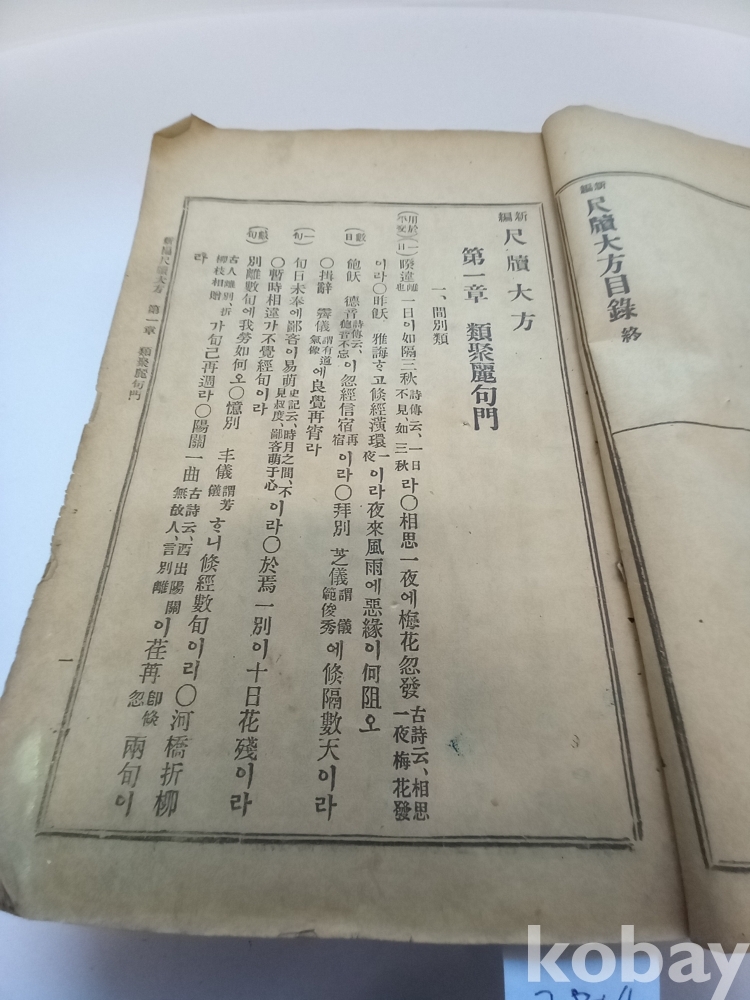 新編 尺牘大方目錄 終
新編 尺牘大方
第一章 類聚麗句門
一、間別類
(用於平交) (一日) 睽違 離也 一日이如隔三秋 詩傳云、一日不見、如三秋 라○相思一夜에梅花忽發 古詩云、相思一夜梅花發
이라○昨飫 雅誨하고倏經漢環 一夜 이라夜來風雨에惡緣이何阻오
(數日) 飽飫 德音 詩傳云、德音不忘 이忽經信宿 再宿 이라○拜別 芝儀 謂儀範俊秀 에倏隔數天이라
○揖辭 霽儀 謂有道氣像 에良覺再宵라
(一旬) 旬日未奉에鄙吝이易萌 史記云、時月之間、不見叔度、鄙吝萌于心 이라○於焉一別이十日花殘이라
○暫時相違가不覺經旬이라
(數旬) 別離數旬에我勞如何오○憶別 丰儀 謂芳儀 하니倏經數旬이리○河橋折柳
古人離別、折柳枝相贈 가旬已再週라○陽關一曲 古詩云、西出陽關無故人、言別離 이荏苒 卽倏忽 兩旬이
라
新編尺牘大方 第一章 類聚麗句門
一
kobay